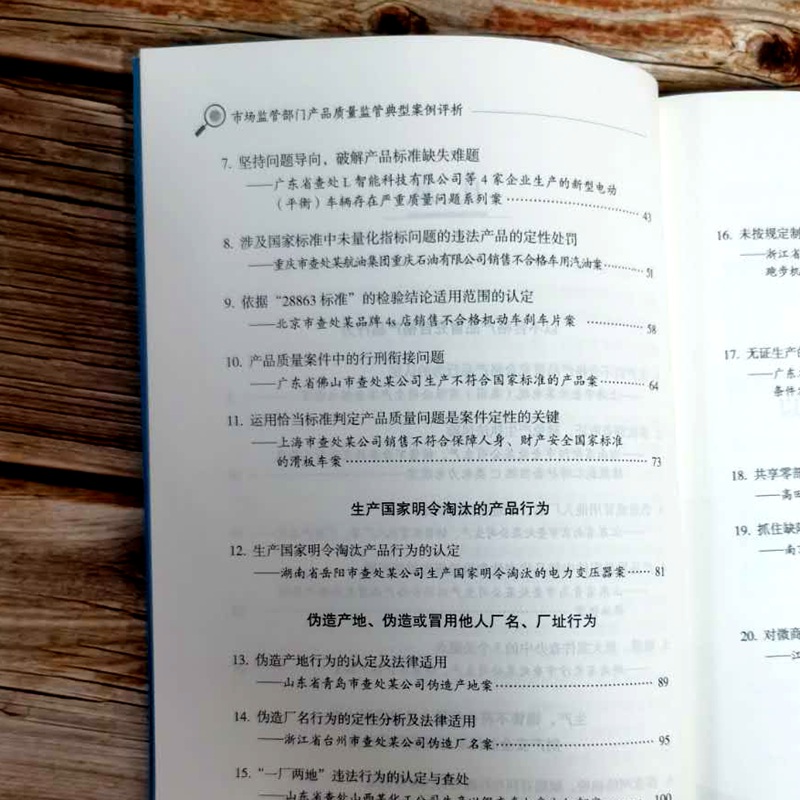 市场监管部门产品质量监管典型案例评析
7. 坚持问题导向，破解产品标准缺失难题
——广东省查处 L 智能科技有限公司等 4 家企业生产的新型电动
（平衡）车辆存在严重质量问题系列案 43
8. 涉及国家标准中未量化指标问题的违法产品的定性处罚
——重庆市查处某航油集团重庆石油有限公司销售不合格车用汽油案 51
9. 依据“28863 标准”的检验结论适用范围的认定
——北京市查处某品牌 4s 店销售不合格机动车刹车片案 58
10. 产品质量案件中的行刑衔接问题
——广东省佛山市查处某公司生产不符合国家标准的产品案 64
11. 运用恰当标准判定产品质量问题是案件定性的关键
——上海市查处某公司销售不符合保障人身、财产安全国家标准
的滑板车案 73
生产国家明令淘汰的产品行为
12. 生产国家明令淘汰产品行为的认定
——湖南省岳阳市查处某公司生产国家明令淘汰的电力变压器案 81
伪造产地、伪造或冒用他人厂名、厂址行为
13. 伪造产地行为的认定及法律适用
——山东省青岛市查处某公司伪造产地案 89
14. 伪造厂名行为的定性分析及法律适用
——浙江省台州市查处某公司伪造厂名案 95
15. “一厂两地”违法行为的认定与查处
——山东省临沂市查处山西某化工公司生产 100
16. 未按规定制
——浙江省
跑步机
17. 无证生产的
——广东
条件
18. 共享零部
——高田
19. 抓住缺
——南
20. 对微商
——江